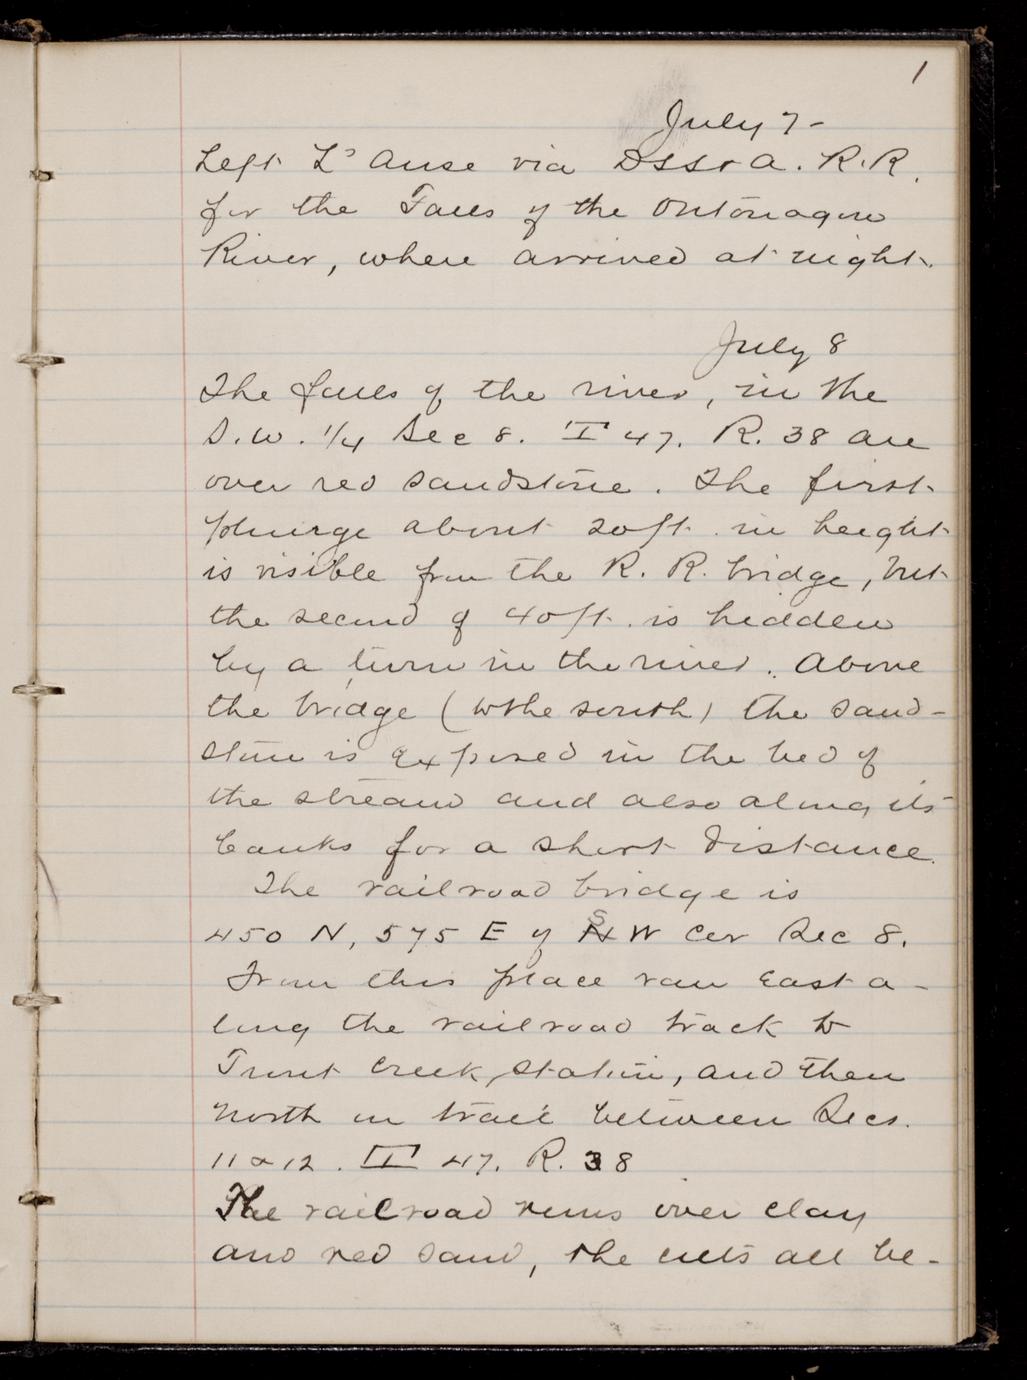 1
July 7-
Left L'Anse via DSS & A. R.R.
for the Falls of the Ontonagon
River, where arrived at night.
July 8
The falls of the river, in the
S.W. 1/4 Sec 8. T 47. R. 38 are
over red sandstone. The first
plunge about 20ft. in height
is visible from the R. R. bridge, but
the second of 40ft. is hidden
by a turn in the river. Above
the bridge (to the south) the sand-
stone is exposed in the bed of
the stream and also along its
banks for a short distance.
The railroad bridge is
450 N, 575 E of SW Cor Sec 8.
From this place ran East a-
long the railroad track to
Trout Creek station, and then
North on trail between Secs.
11 & 12. T 47. R. 38
The railroad runs over clay
and red sand, the cuts all be-